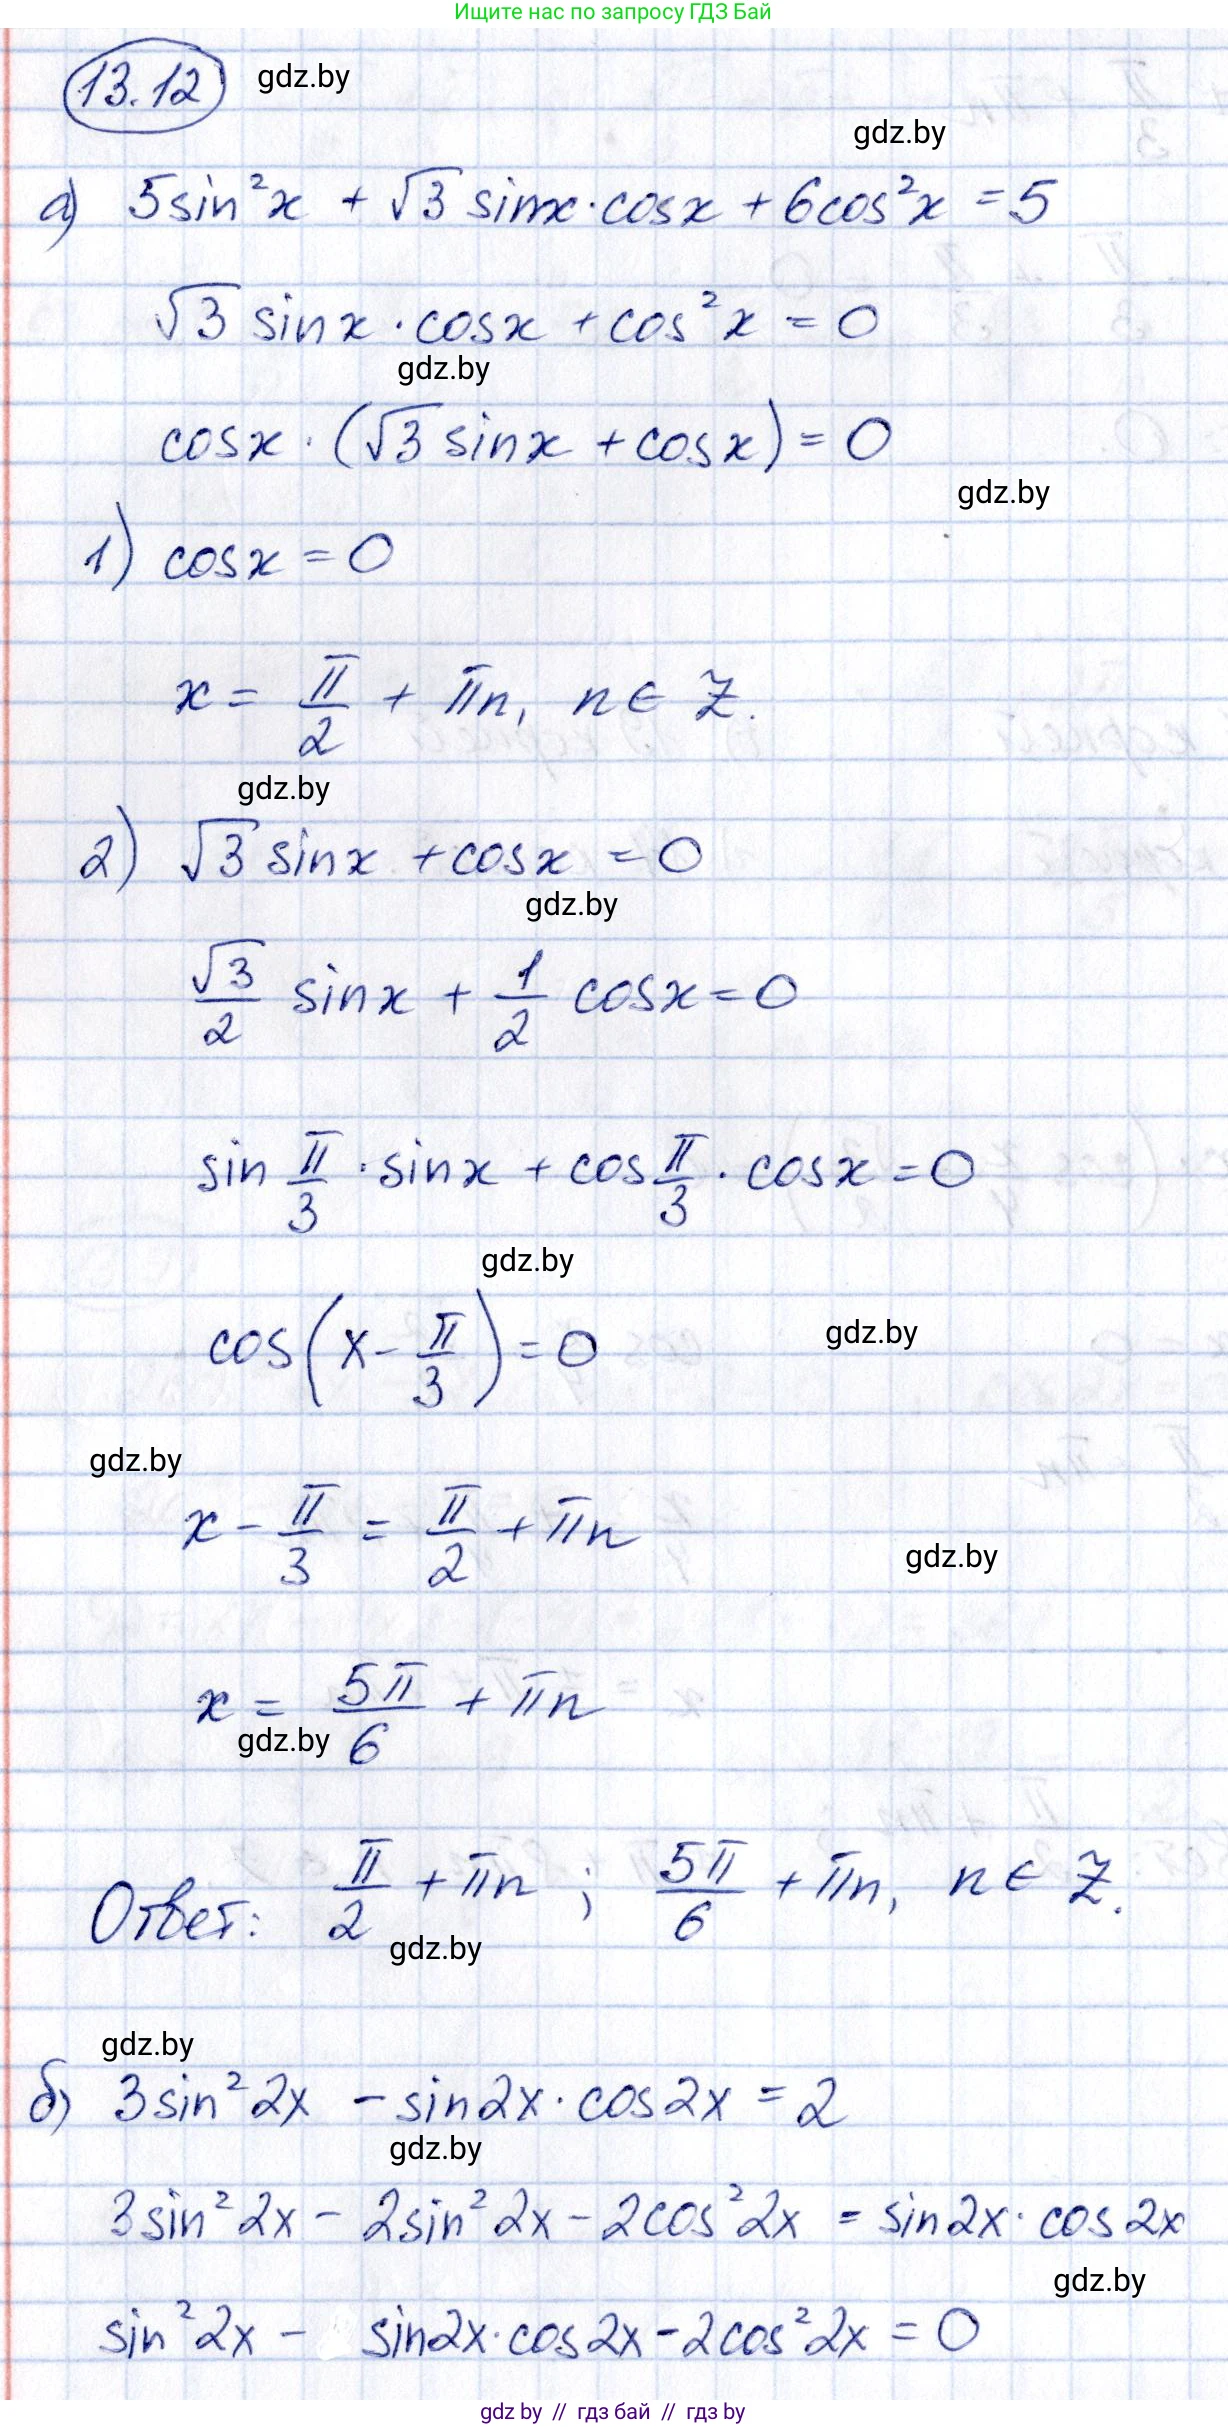 Ищите нас по запросу ГДЗ Бай
13.12 gdz.by
gdz.by
а) 5sin²x + √3 sinx·cosx + 6cos²x = 5
√3 sinx·cosx + cos²x = 0
gdz.by
cosx·(√3 sinx + cosx) = 0
gdz.by
1) cosx = 0
x = π/2 + πn, n ∈ Z.
gdz.by
2) √3 sinx + cosx = 0
gdz.by
√3/2 sinx + 1/2 cosx = 0
sin π/3 · sinx + cos π/3 · cosx = 0
gdz.by
cos(x - π/3) = 0
gdz.by
gdz.by
x - π/3 = π/2 + πn
gdz.by
x = 5π/6 + πn
gdz.by
Ответ: π/2 + πn ; 5π/6 + πn, n ∈ Z.
gdz.by
gdz.by
б) 3sin²2x - sin2x·cos2x = 2
gdz.by
3sin²2x - 2sin²2x - 2cos²2x = sin2x·cos2x
gdz.by
sin²2x - sin2x·cos2x - 2cos²2x = 0
gdz.by // гдз бай // гдз by